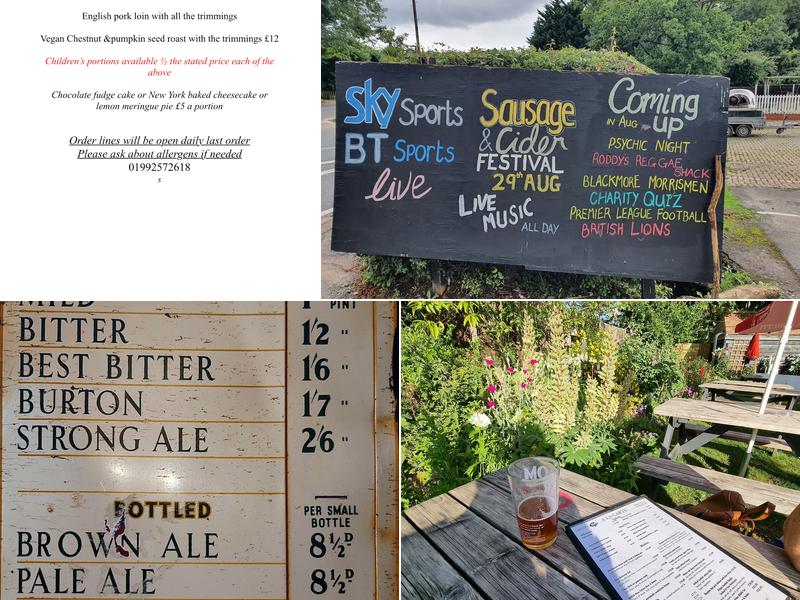 English pork loin with all the trimmings
Vegan Chestnut &pumpkin seed roast with the trimmings £12
Children's portions available ½ the stated price each of the
above
Chocolate fudge cake or New York baked cheesecake or
lemon meringue pie £5 a portion
Order lines will be open daily last order
Please ask about allergens if needed
01992572618
s
Sky Sports
BT Sports
live
Sausage
& Cider
FESTIVAL
29th AUG
LIVE
MUSIC
ALL DAY
Coming
IN AUG UP
PSYCHIC NIGHT
RODDYS REGGAE
SHACK
BLACKMORE MORRISMEN
CHARITY QUIZ
PREMIER LEAGUE FOOTBALL
BRITISH LIONS
MILD 1' PINT
BITTER 1'2 "
BEST BITTER 1'6 "
BURTON 1'7 "
STRONG ALE 2'6 "
BOTTLED PER SMALL
BOTTLE
BROWN ALE 8½D
PALE ALE 8½D
MO
A LA CARTE